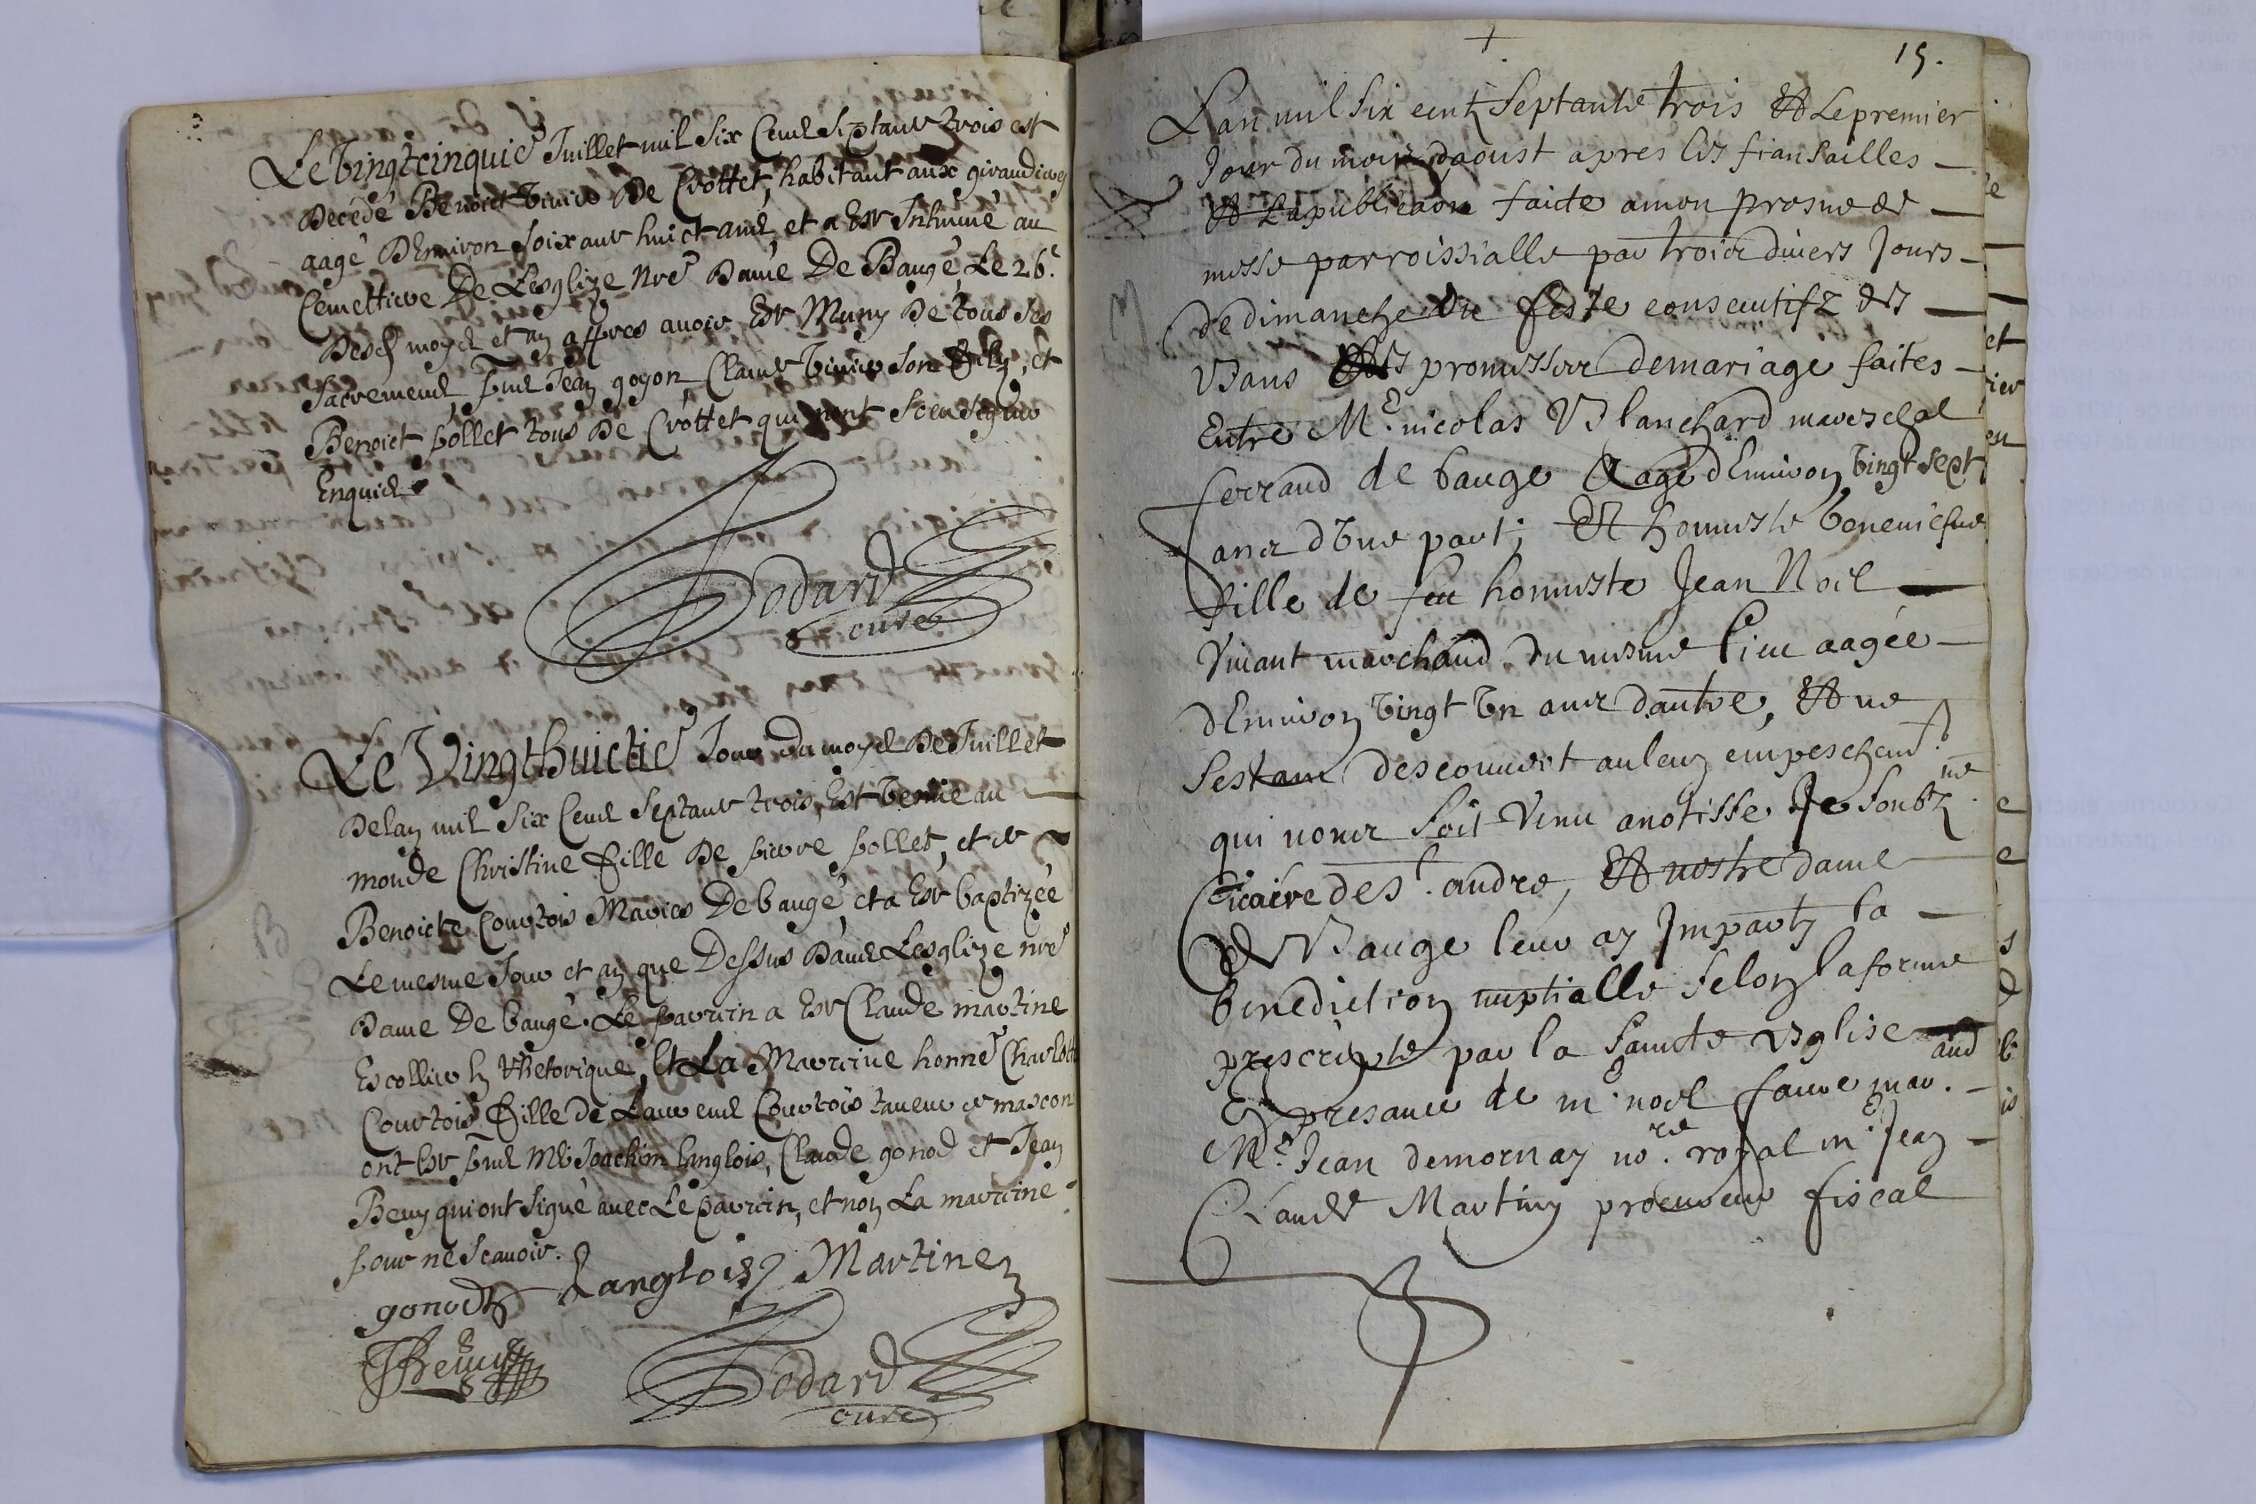 Le Vingtcinquie Juillet mil six Cens Septante trois est
decédé Benoict Vivier de Crottet, habitant aux giraudieres
aagé d'Environ soixante huict ans et a Esté Inhumé au
Cemettiere De Lesglize nre Dame De Baugé Le 26e
desd moys et an appres avoir Esté Muny de tous ses
sacremens pns Jean goyon Claude Vivier son fils, et
Benoict pollet tous de Crottet qui nont sceu signer
Enquis
Godard
curé
Le Vingthuictie Jour du moys de Juillet
de lan mil six Cens Septante trois, Est Venue au
monde Christine fille de pierre pollet, et de
Benoicte Courtois Mariés De baugé, et a Esté baptizée
Le mesme Jour et an que Dessus dans Lesglize nre
Dame De baugé. Le parrin a Esté Claude martine
Escollier En Rhetorique, Et La Marrine honne Charlotte
Courtois fille de Laurens Courtois taneur de mascon
ont Esté pns Mr Joachim Langlois, Claude gonod et Jean
Beuy qui ont signé avec Le parrin, et non La marrine
pour ne scavoir.
gonod Langlois Martine
JBeuy
Godard
curé
15.
Lan mil six centz Septante trois Et Le premier
Jour du mois daoust apres les fiansailles
Et La publication faicte a mon prosne de
messe parroissialle par trois divers Jours
de dimanche ou feste consecutifz des
Bans des promesses de mariage faites
Entre Me. nicolas Blanchard mareschal
ferrand de bauge Aagé d'Environ Vingt sept
ans d'Une part; Et honneste
fille de feu honneste Jean Noel
Vivant marchand du mesme lieu aagée
d'Environ Vingt Un ans dautre, Et ne
sestant descouvert aulcun empeschemt
qui nous soit Venu a notisse Je soubzne
Vicaire de st. andre, Et nostre dame
de Bauge leur ay Imparty la
benediction nuptialle selon la forme
prescripte par la saincte Esglise
En presance de me noel faure mar.and
Me. Jean demornay nore. royal me Jean
Claude Martin procureur fiscal